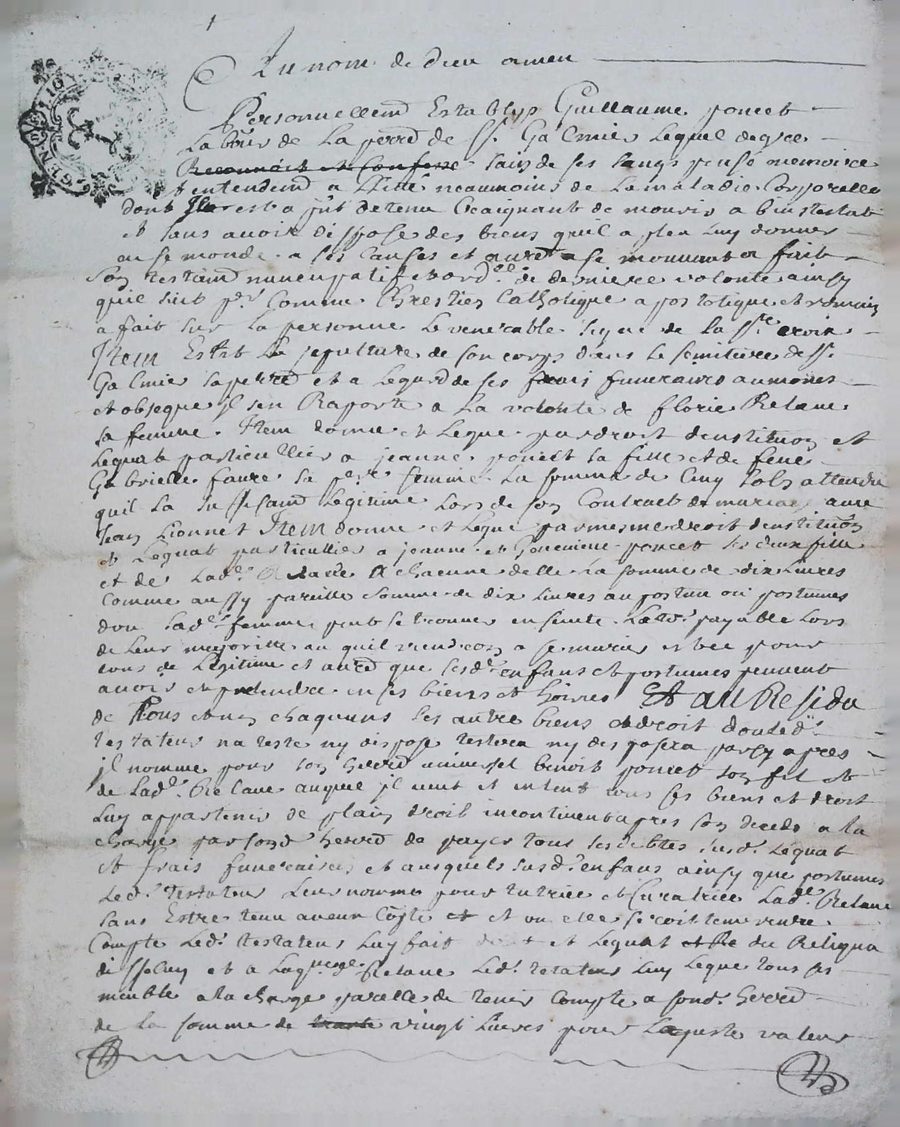 Au nom de dieu amen
Personnellemt Estably Guillaume poncet
Laboureur de La perre de St. Galmier Lequel de gré
Reconnoit et Confesse sain de ses sangs pensé memoire
et entendemt neaumoins de Lamaladie Corporelle
dont Il est a pnt detenu Craignant de mourir ab intestat
et sans avoir disposé des biens quil a pleu Luy donner
au se monde a ses Causes et autre a se mouvant a fait
Son testamt nuncupatif et ordce de derniere volonte ainsy
quil suit pr Comme Chrestien Catholique apostolique et romain
a fait sur La personne Le venerable signe de la Ste croix
Item Eslit La sepulture de son corps dans Le semitiere de St.
Galmier et a Legard de ses frais funeraires aumones
et obseque jl sen Raporte a La volonté de florie Relave
sa femme. Item donne et Legue par droit dinstitution et
Legat particullier a jeanne poncet sa fille et de feue
Gabrielle faure sa pre femme La somme de Cinq sols attendu
quil La suffisamt Legitime Lors de son Contract de mariage avec
jean Lionnet Item donne et Legue par mesme droit dinstitution
et Legat particullier a jeanne et Genevieve poncet ses deux fille
et de Lade Relave A chacune delle La somme de dix Livres
Comme aussy pareille somme de dix Livres au postume ou postumes
don Lade femme peut se trouver enseinte Le tt payable Lors
de Leur majorité ou quil viendron a se marier et ce pour
tous dt Legitime et autre que sesds enfans et postumes peuvent
avoir et pretendre en ses biens et hoiries Et au Residu
de Tous et un chaquuns ses autre biens et droit dont led.
testateur na testé ny disposé testera ny disposera par cy apres
jl nomme pour son herer universel benoit poncet son fil et
de Lade Relave auquel jl veut et intent tous ses biens et droit
Luy appartenir de plain droit incontinent apres son deceds a la
charge par sond herer de payer tous ses debtes susd. Legat
et frais funeraires et ausquels susd. enfans ainsy que postumes
Led. testateur Leur nomme pour tutrice et Curatrice Lade Relave
sans Estre tenu aucun Compte et ou elle seroit tenu rendre
Compte Led. testateur Luy fait et Legat du Reliqua
disseluy et a Laquelle Relave Led. testateur Luy Legue tous ses
meuble a la charge parelle de tenir Compte a sond. herer
de la somme de trante vingt Livres pour La juste valeur